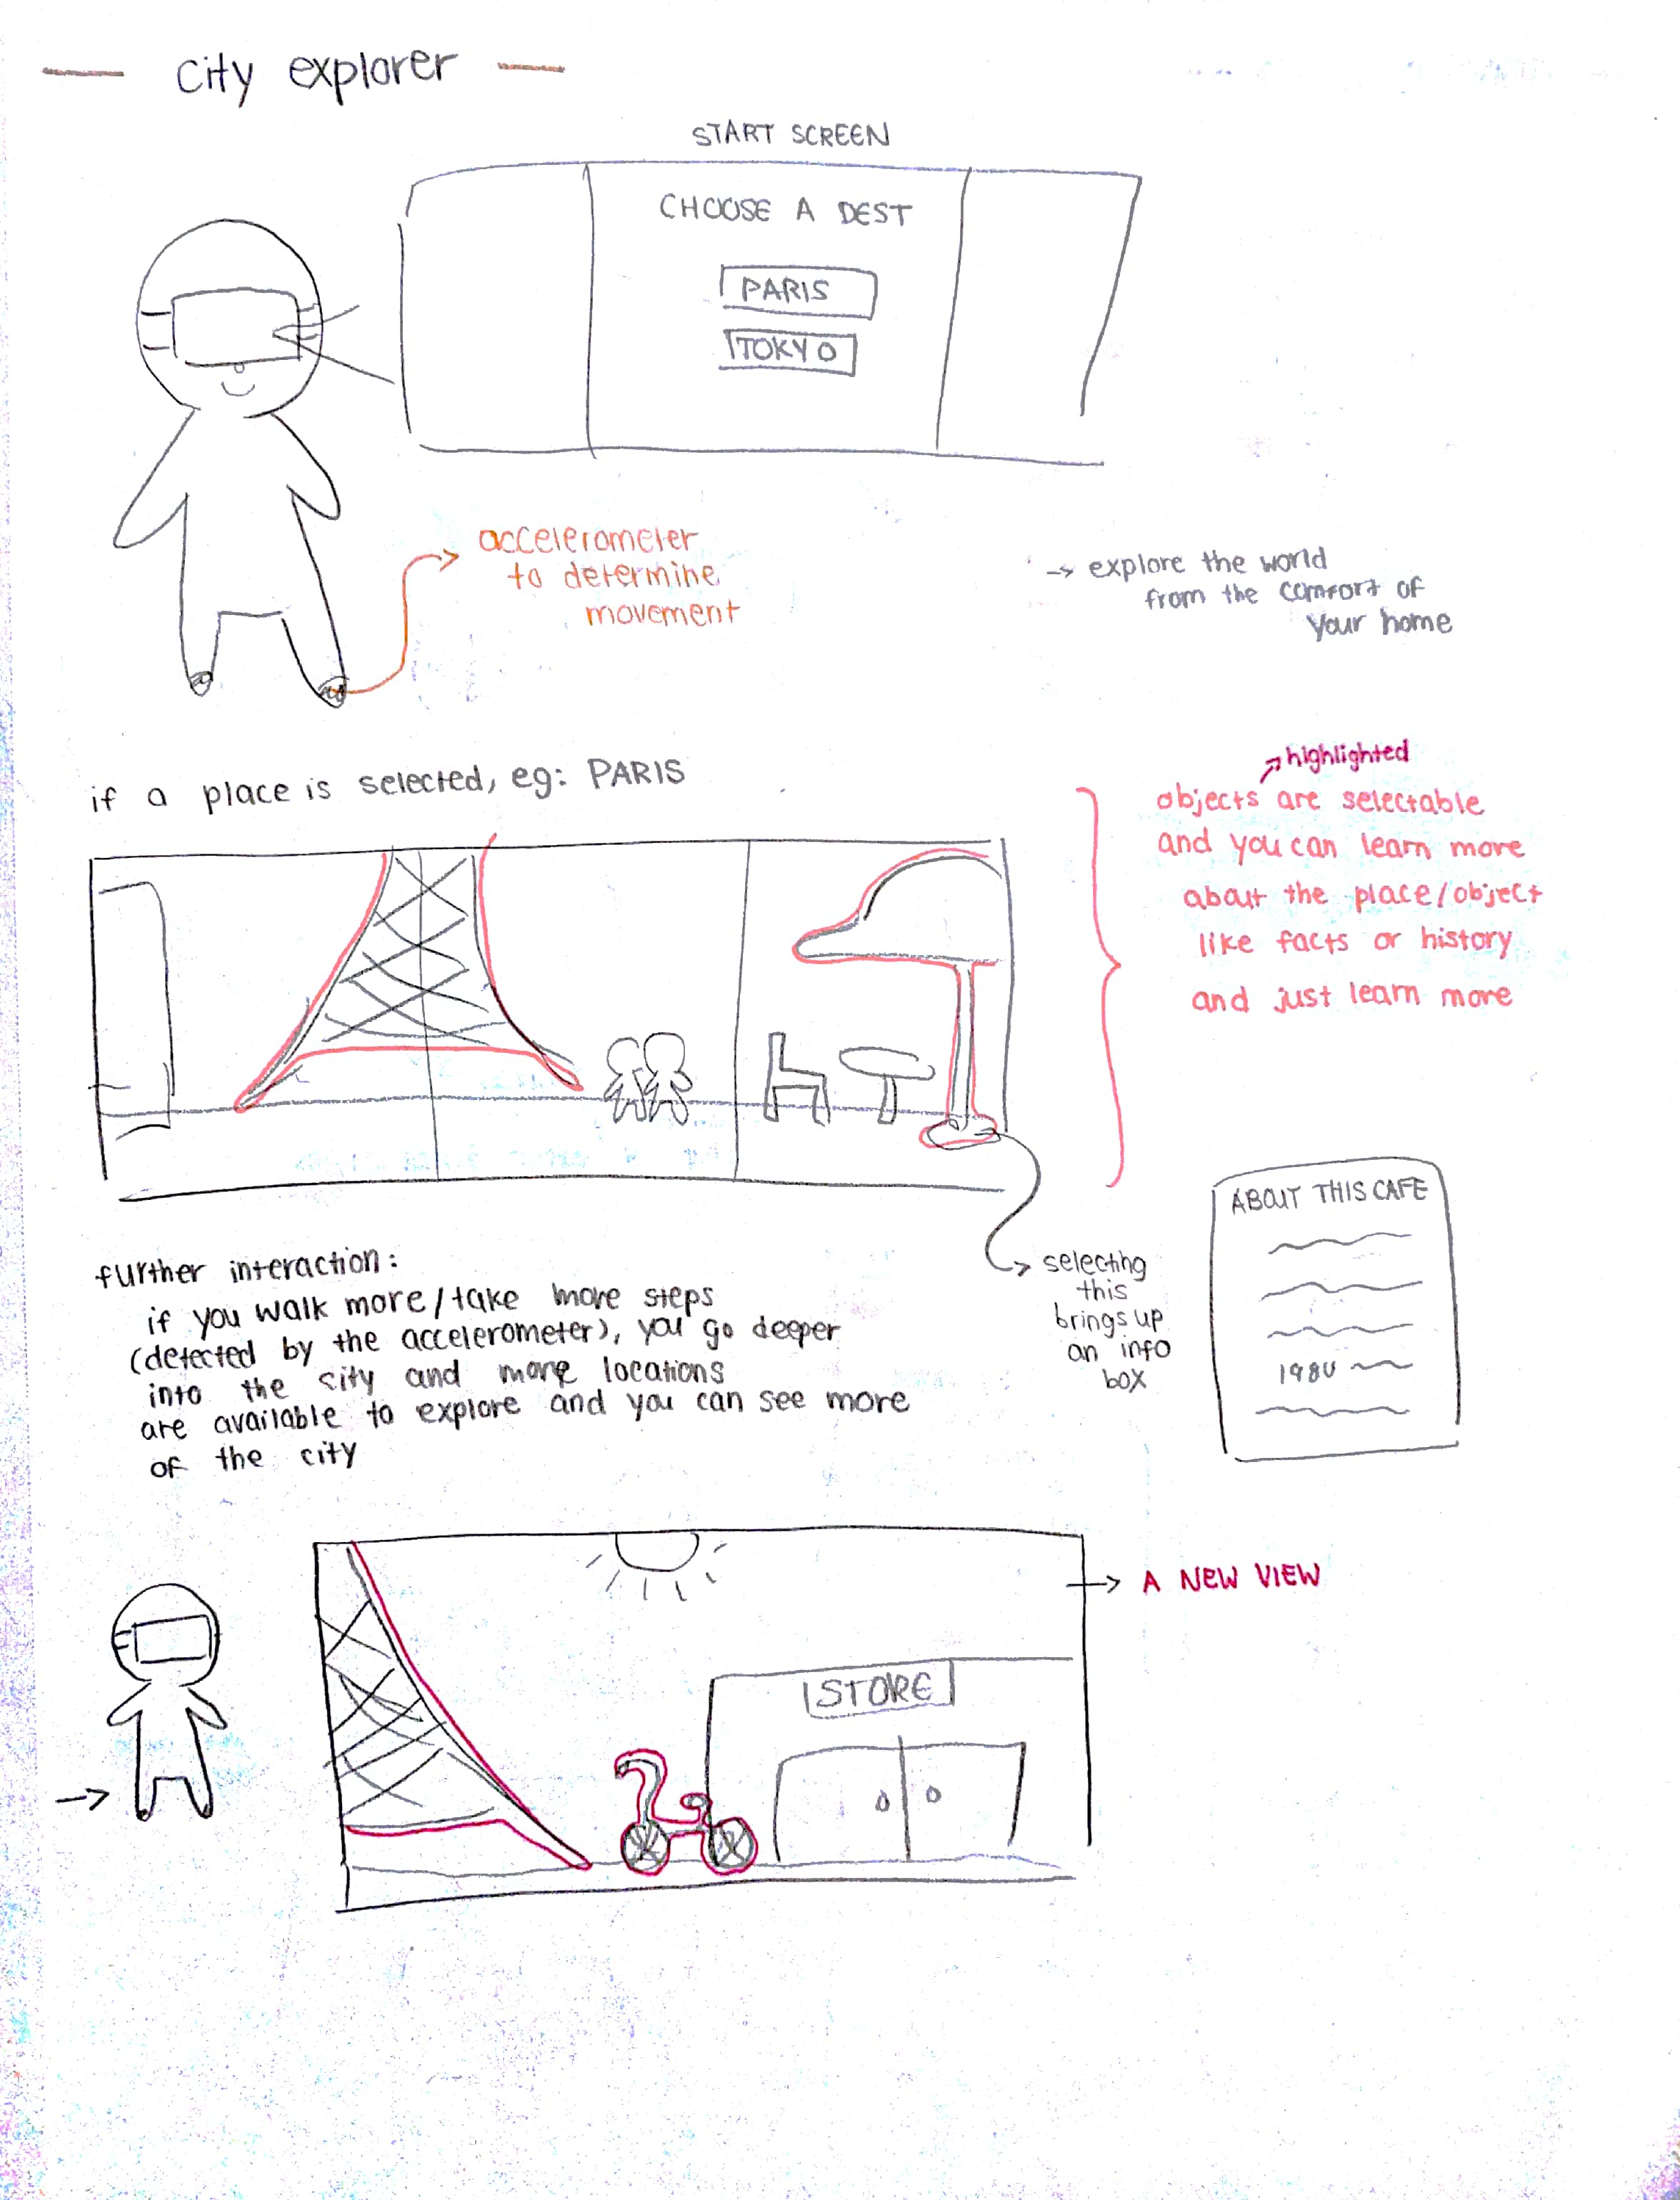 city explorer
START SCREEN
CHOOSE A DEST
PARIS
TOKYO
accelerometer
to determine
movement
→ explore the world
from the comfort of
your home
if a place is selected, eg: PARIS
highlighted
objects are selectable
and you can learn more
about the place/object
like facts or history
and just learn more
selecting
this
brings up
an info
box
ABOUT THIS CAFE
1980
further interaction:
if you walk more/take more steps
(detected by the accelerometer), you go deeper
into the city and more locations
are available to explore and you can see more
of the city
A NEW VIEW
STORE